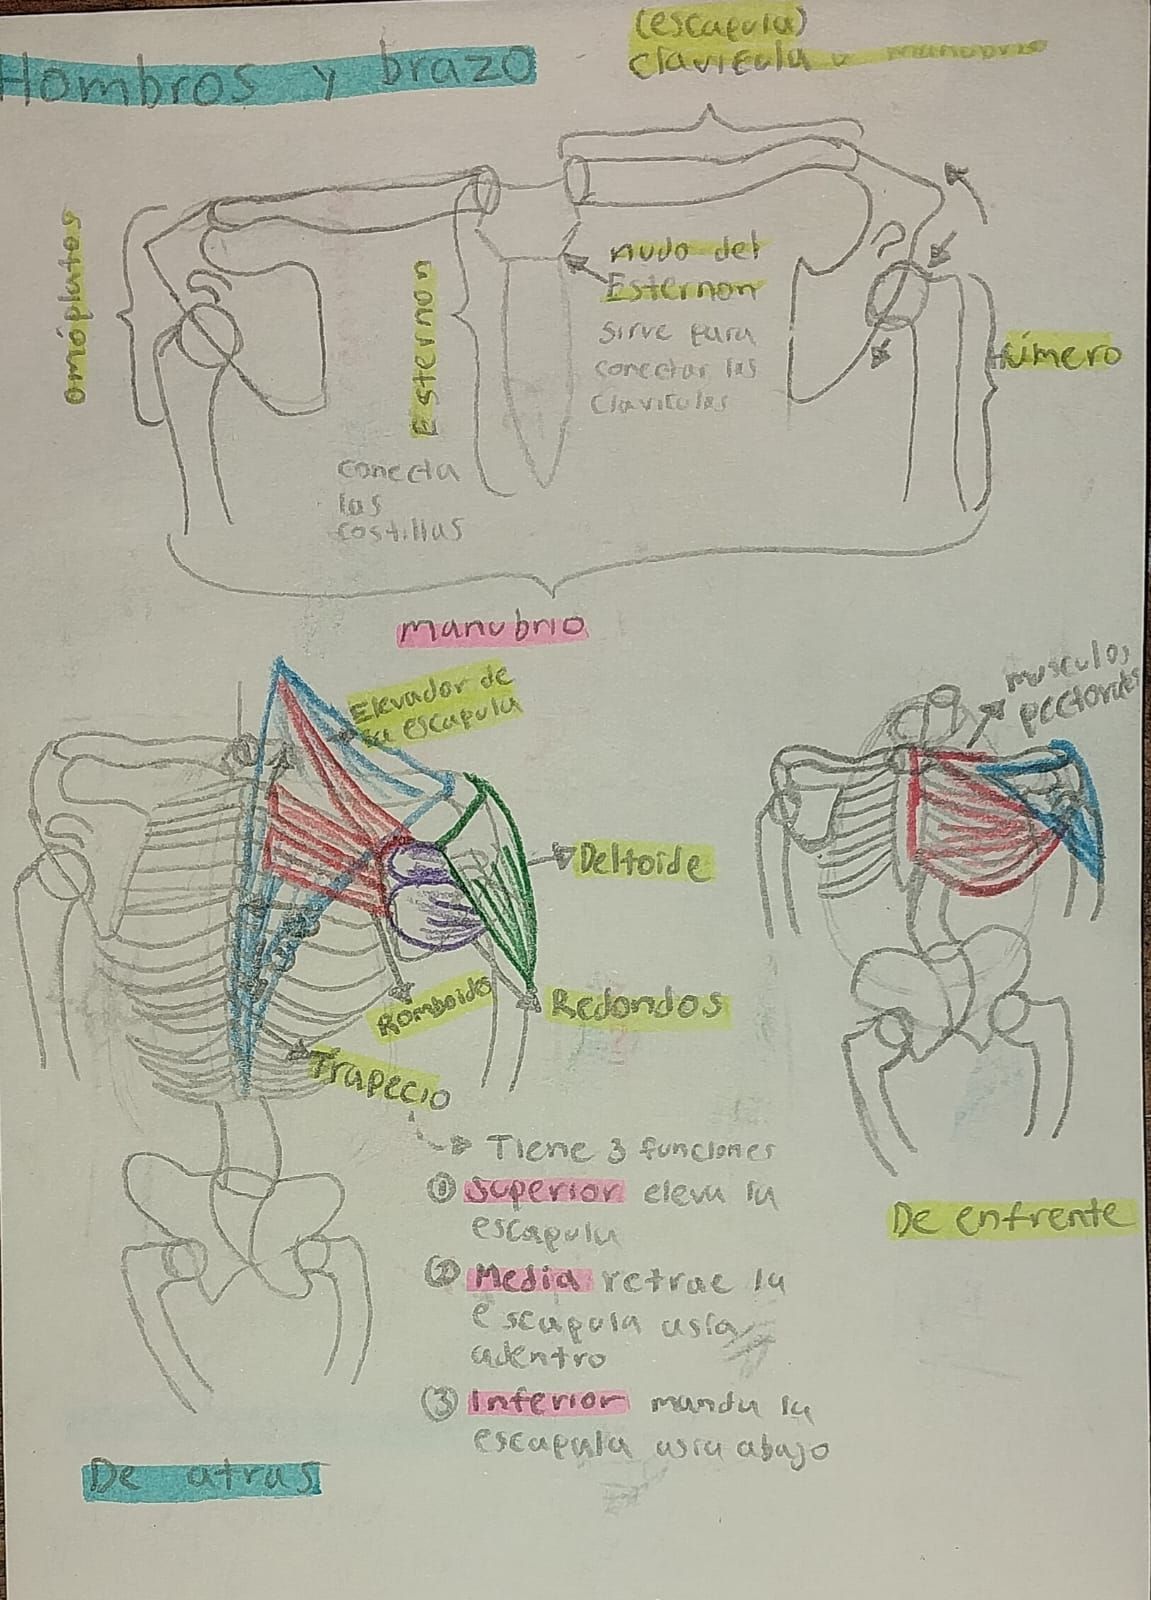 Hombros y brazo
(escapula)
clavicula o manubrio
omóplatos
Esternon
conecta
las
costillas
nudo del
Esternon
sirve para
conectar las
claviculas
Húmero
manubrio
Elevador de
la escapula
Deltoide
Romboide
Redondos
Trapecio
Tiene 3 funciones
① Superior eleva la
escapula
② Media retrae la
escapula asia
adentro
③ Inferior manda la
escapula asia abajo
De atras
musculos
pectorales
De enfrente